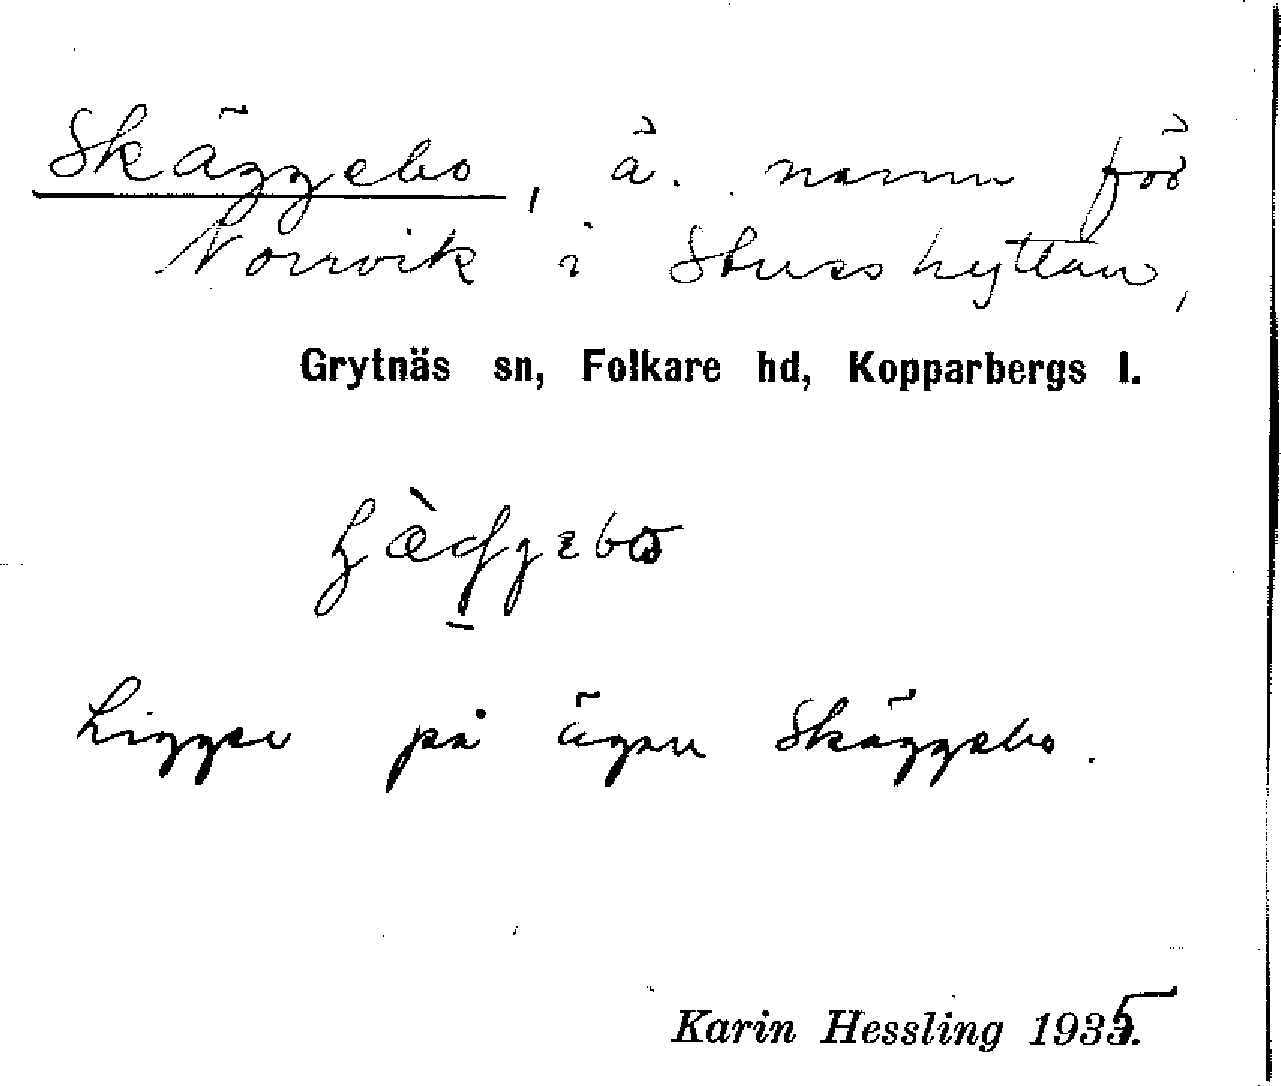 Skäggebo, ä. namn för
Norrvik i Stusshyttan,
Grytnäs sn, Folkare hd, Kopparbergs l.
Ligger på ägan Skäggebo.
Karin Hessling 1935.